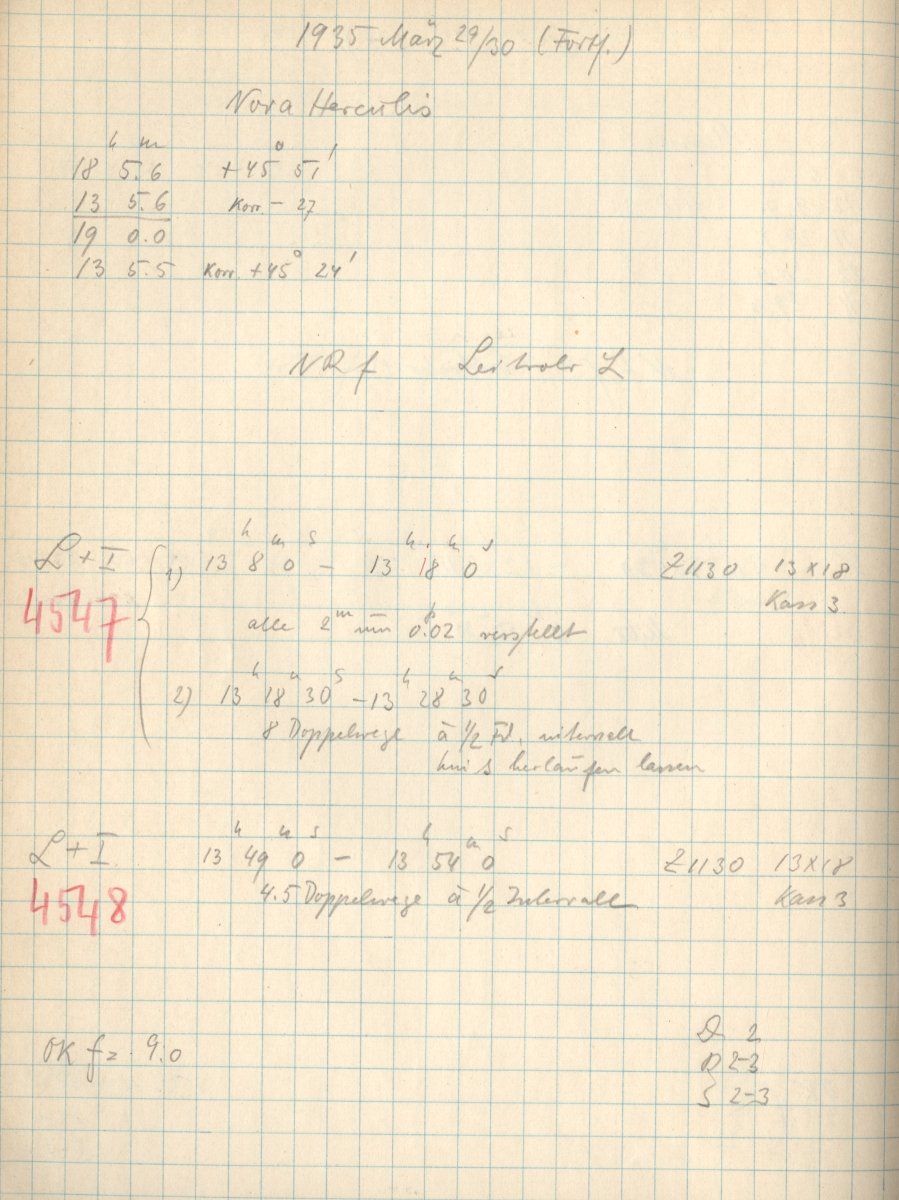 1935 März 29/30 (Forts.)
Nova Herculis
h m ° '
18 5.6 +45 51
13 5.6 Korr. - 27
19 0.0
13 5.5 Korr. +45° 24'
NRf Leitrohr L
L + I 1) 13h 8m 0s - 13h 18m 0s Z 1130 13x18
4547 Kass 3.
alle 2m um 0.p02 verstellt
2) 13h 18m 30s - 13h 28m 30s
8 Doppelwege à 1/2 Fd. intervall
hin s herlaufen lassen
L + I 13h 49m 0s - 13h 54m 0s Z 1130 13x18
4548 4.5 Doppelwege à 1/2 Intervall Kass 3
D 2
OK f = 9.0 R 2-3
S 2-3